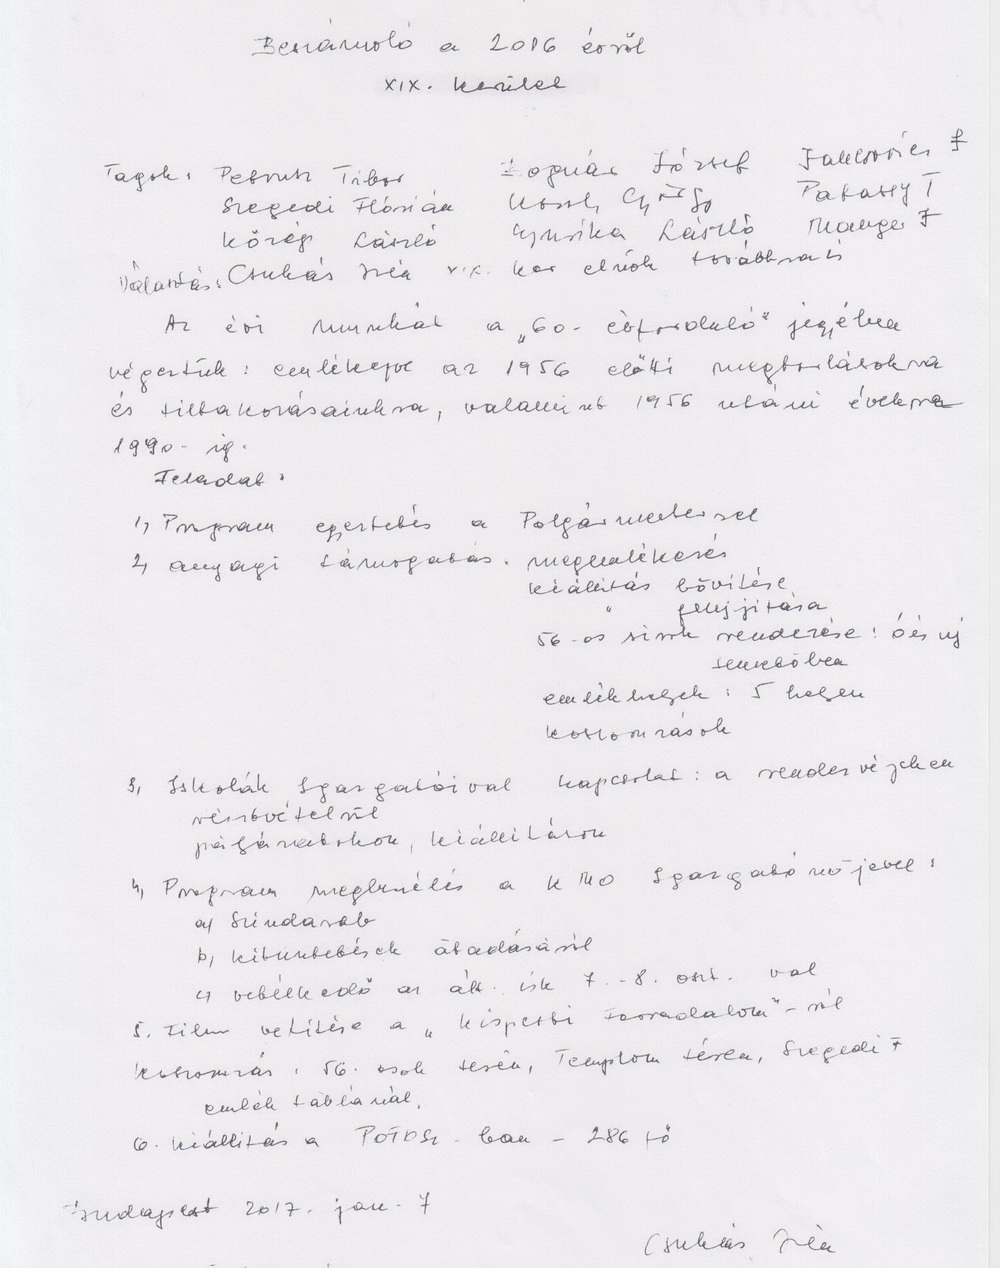 Beszámoló a 2016 évről
XIX. kerület
Tagok: Petrus Tibor Bognár József F
Szegedi Flórián György Patassy T
Kőrög László Gyurika László Monger F
Választás: Csukás Irén XIX. ker elnök továbbra is
Az évi munkát a „60-évforduló" jegyében
végeztük: emlékezve az 1956 előtti megtorlásokra
és tiltakozásainkra, valamint 1956 utáni évekre
1990-ig.
Feladat:
1, Program egyeztetés a Polgármesterrel
2, anyagi támogatás. megemlékezés
kiállítás bővítése
" felújjítása
56-os sírok rendezése: ó és új
temetőben
emlékhelyek: 5 helyen
koszorúzások
3, Iskolák Igazgatóival kapcsolat: a rendezvényeken
részvételről
pályázatokon, kiállításon
4, Program megbeszélés a KMO Igazgatónőjével:
a) Színdarab
b, kitüntetések átadásáról
c, vetélkedő az ált. isk 7.-8. oszt. val
5. Film vetítése a „Kispesti Forradalom"-ról
Koszorúzás: 56. osok terén, Templom téren, Szegedi F
emlék táblánál.
6. Kiállítás a POFOSZ-ban - 286 fő
Budapest 2017. jan. 7
Csukás Irén